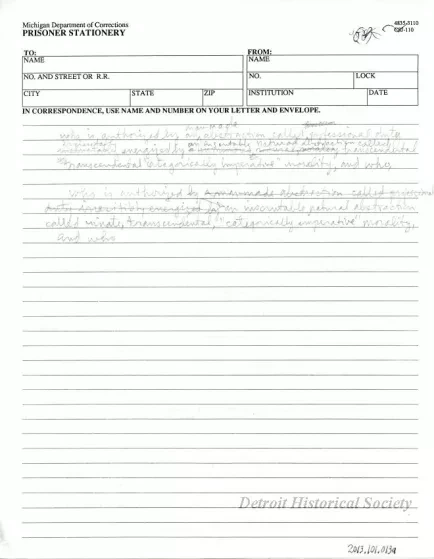 Michigan Department of Corrections
PRISONER STATIONERY
4835-3110
TO:
NAME
NO. AND STREET OR R.R.
CITY STATE ZIP
FROM:
NAME
NO. LOCK
INSTITUTION DATE
IN CORRESPONDENCE, USE NAME AND NUMBER ON YOUR LETTER AND ENVELOPE.
man-made
who is authorized by an abstraction called professional duty
energized by called transcendental
transcendental "categorically imperative" morality, and who
who is authorized by a manmade abstraction called professional
duty energized by an inscrutable natural abstraction
called innate, transcendental, "categorically imperative" morality,
and who
Detroit Historical Society
2013.101.013a